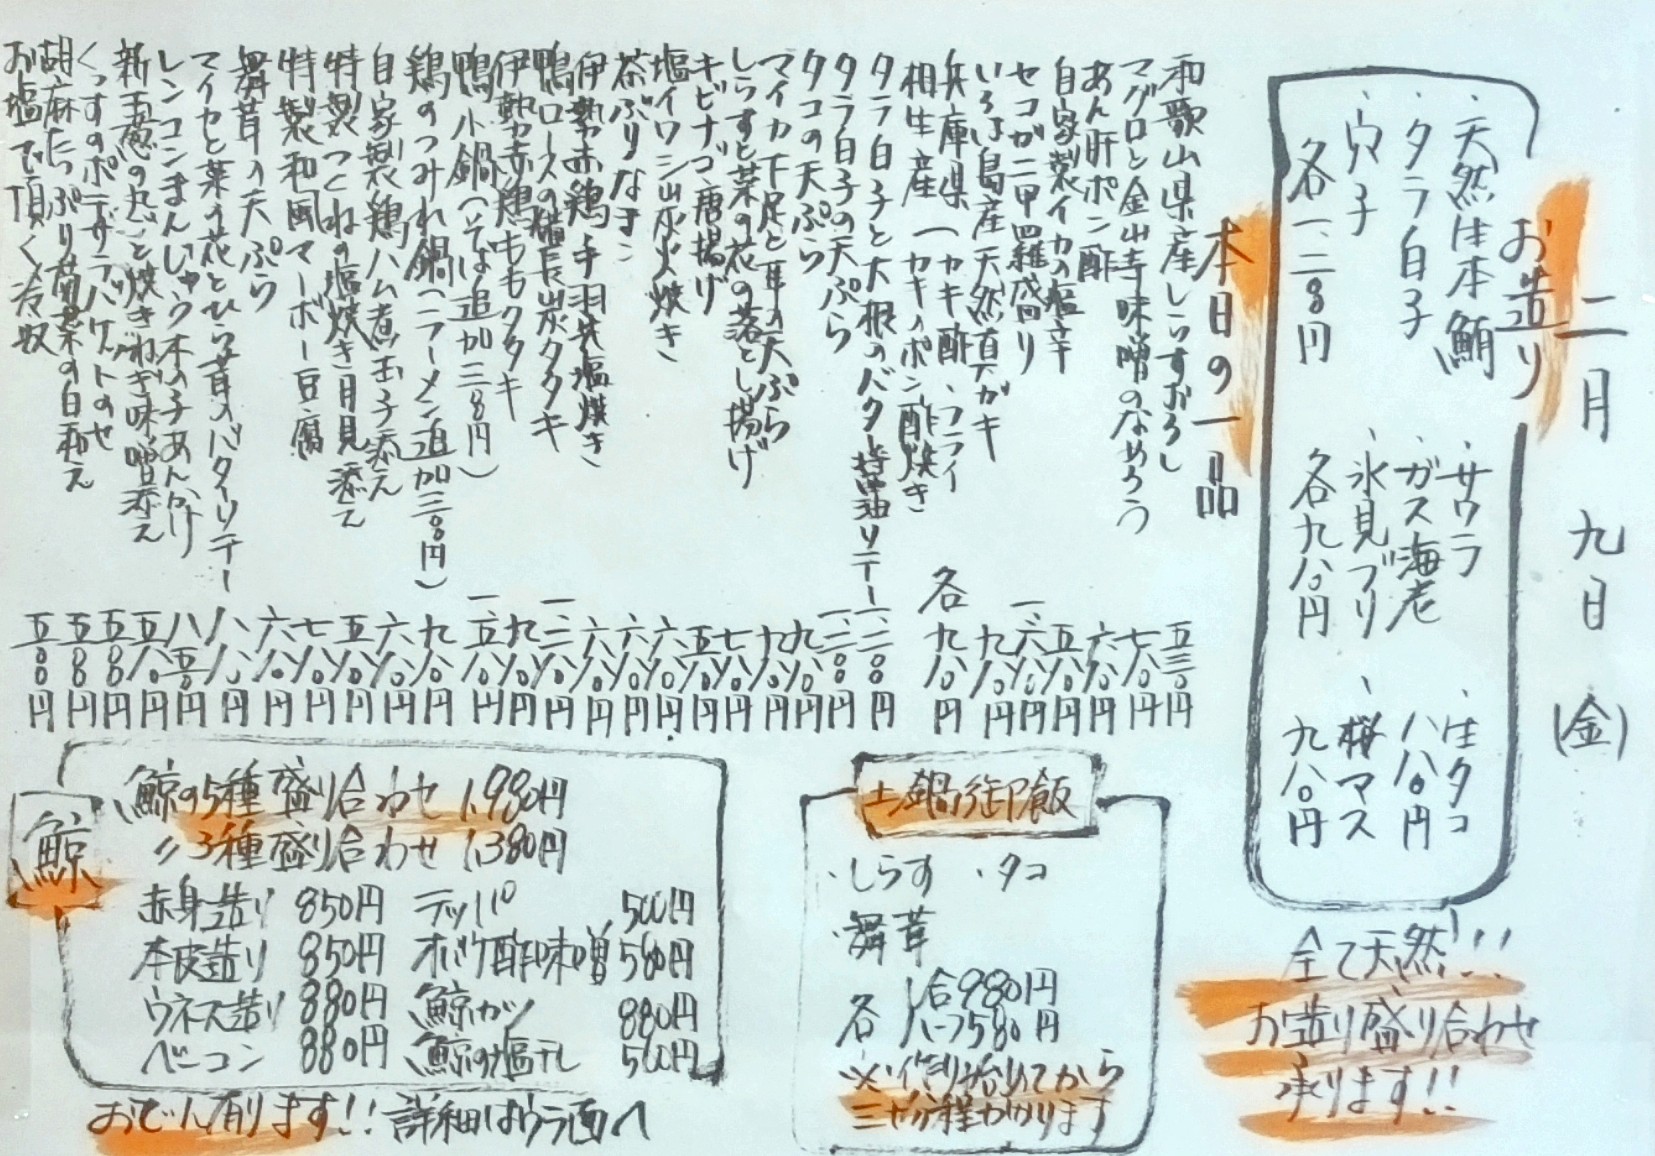 二月九日(金)
お造り
・天然生本鮪
・タラ白子
・穴子
各一、二八〇円
・サワラ
・ガス海老
・氷見ブリ
各九八〇円
・生タコ
八八〇円
・桜マス
九八〇円
全て天然!!
お造り盛り合わせ
承ります!!
本日の一品
和歌山県産しらすおろし 五三〇円
マグロと金山寺味噌のなめろう 七八〇円
あん肝ポン酢 六八〇円
自家製イカの塩辛 五八〇円
セコガニ甲羅盛り 一、六八〇円
いろは島産天然真ガキ 九八〇円
兵庫県 (カキ酢、フライ
相生産 (カキのポン酢焼き 各九八〇円
タラ白子と大根のバター醤油ソテー 一、二八〇円
タラ白子の天ぷら 一、二八〇円
タコの天ぷら 九八〇円
マイカ下足と耳の天ぷら 九八〇円
しらすと菜の花の落とし揚げ 七八〇円
キビナゴ唐揚げ 五八〇円
塩イワシ炭火焼き 六八〇円
茶ぶりなまこ 六八〇円
伊勢赤鶏手羽先塩焼き 六八〇円
鴨ロースの備長炭タタキ 一、二八〇円
伊勢赤鶏ももタタキ 九八〇円
鴨小鍋(そば追加三八〇円) 一、五八〇円
鶏のつみれ鍋(ラーメン追加三〇〇円) 九八〇円
自家製鶏ハム煮玉子添え 六八〇円
特製つくねの塩焼き月見添え 五八〇円
特製和風マーボー豆腐 七八〇円
舞茸の天ぷら 六八〇円
マイカと菜の花とひら茸のバターソテー 八八〇円
レンコンまんじゅう木の子あんかけ 八五〇円
新玉葱の丸ごと焼きねぎ味噌添え 五八〇円
くっすのポテサラバケットのせ 五五〇円
胡麻たっぷり菊菜の白和え 五五〇円
お塩で頂く冷奴 五〇〇円
土鍋御飯
・しらす ・タコ
・舞茸
各 一合980円
ハーフ580円
※作り始めてから
三十分程かかります
鯨
鯨の5種盛り合わせ 1,980円
〃 3種盛り合わせ 1,380円
赤身造り 850円
本皮造り 850円
ウネス造り 880円
ベーコン 880円
テッパ 500円
オバケ酢味噌 580円
鯨カツ 880円
鯨の塩干し 500円
おでん有ります!! 詳細はウラ面へ